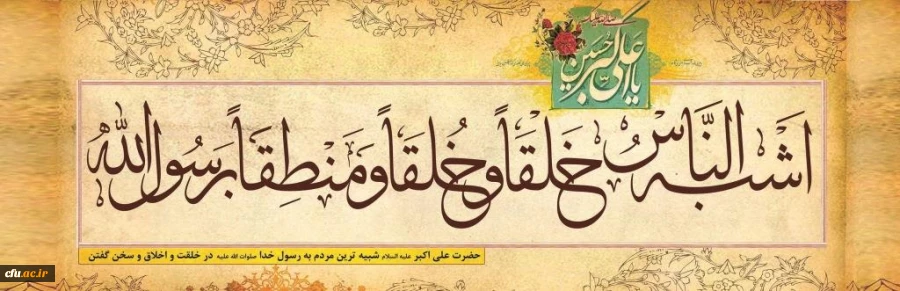 یا علی اکبر حسین
اشبه الناس خَلقاً و خُلقاً و مَنطِقاً برسول الله
حضرت علی اکبر علیه السلام شبیه ترین مردم به رسول خدا صلوات الله علیه در خلقت و اخلاق و سخن گفتن
cfu.ac.ir